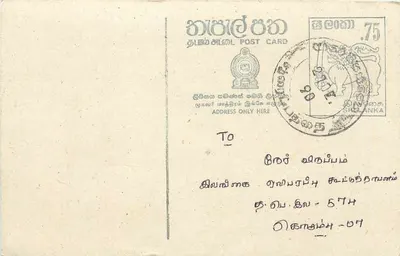 තැපැල් පත
தபாலட்டை POST CARD
ශ්‍රී ලංකා .75
ලිපිනය පමණක් මෙහි
முகவரி மாத்திரம் இங்கே
ADDRESS ONLY HERE
இலங்கை
SRI LANKA
90
To
நேயர் விருப்பம்
இலங்கை ஒலிபரப்பு கூட்டுத்தாபனம்
த.பெ.இல - 574
கொழும்பு -07